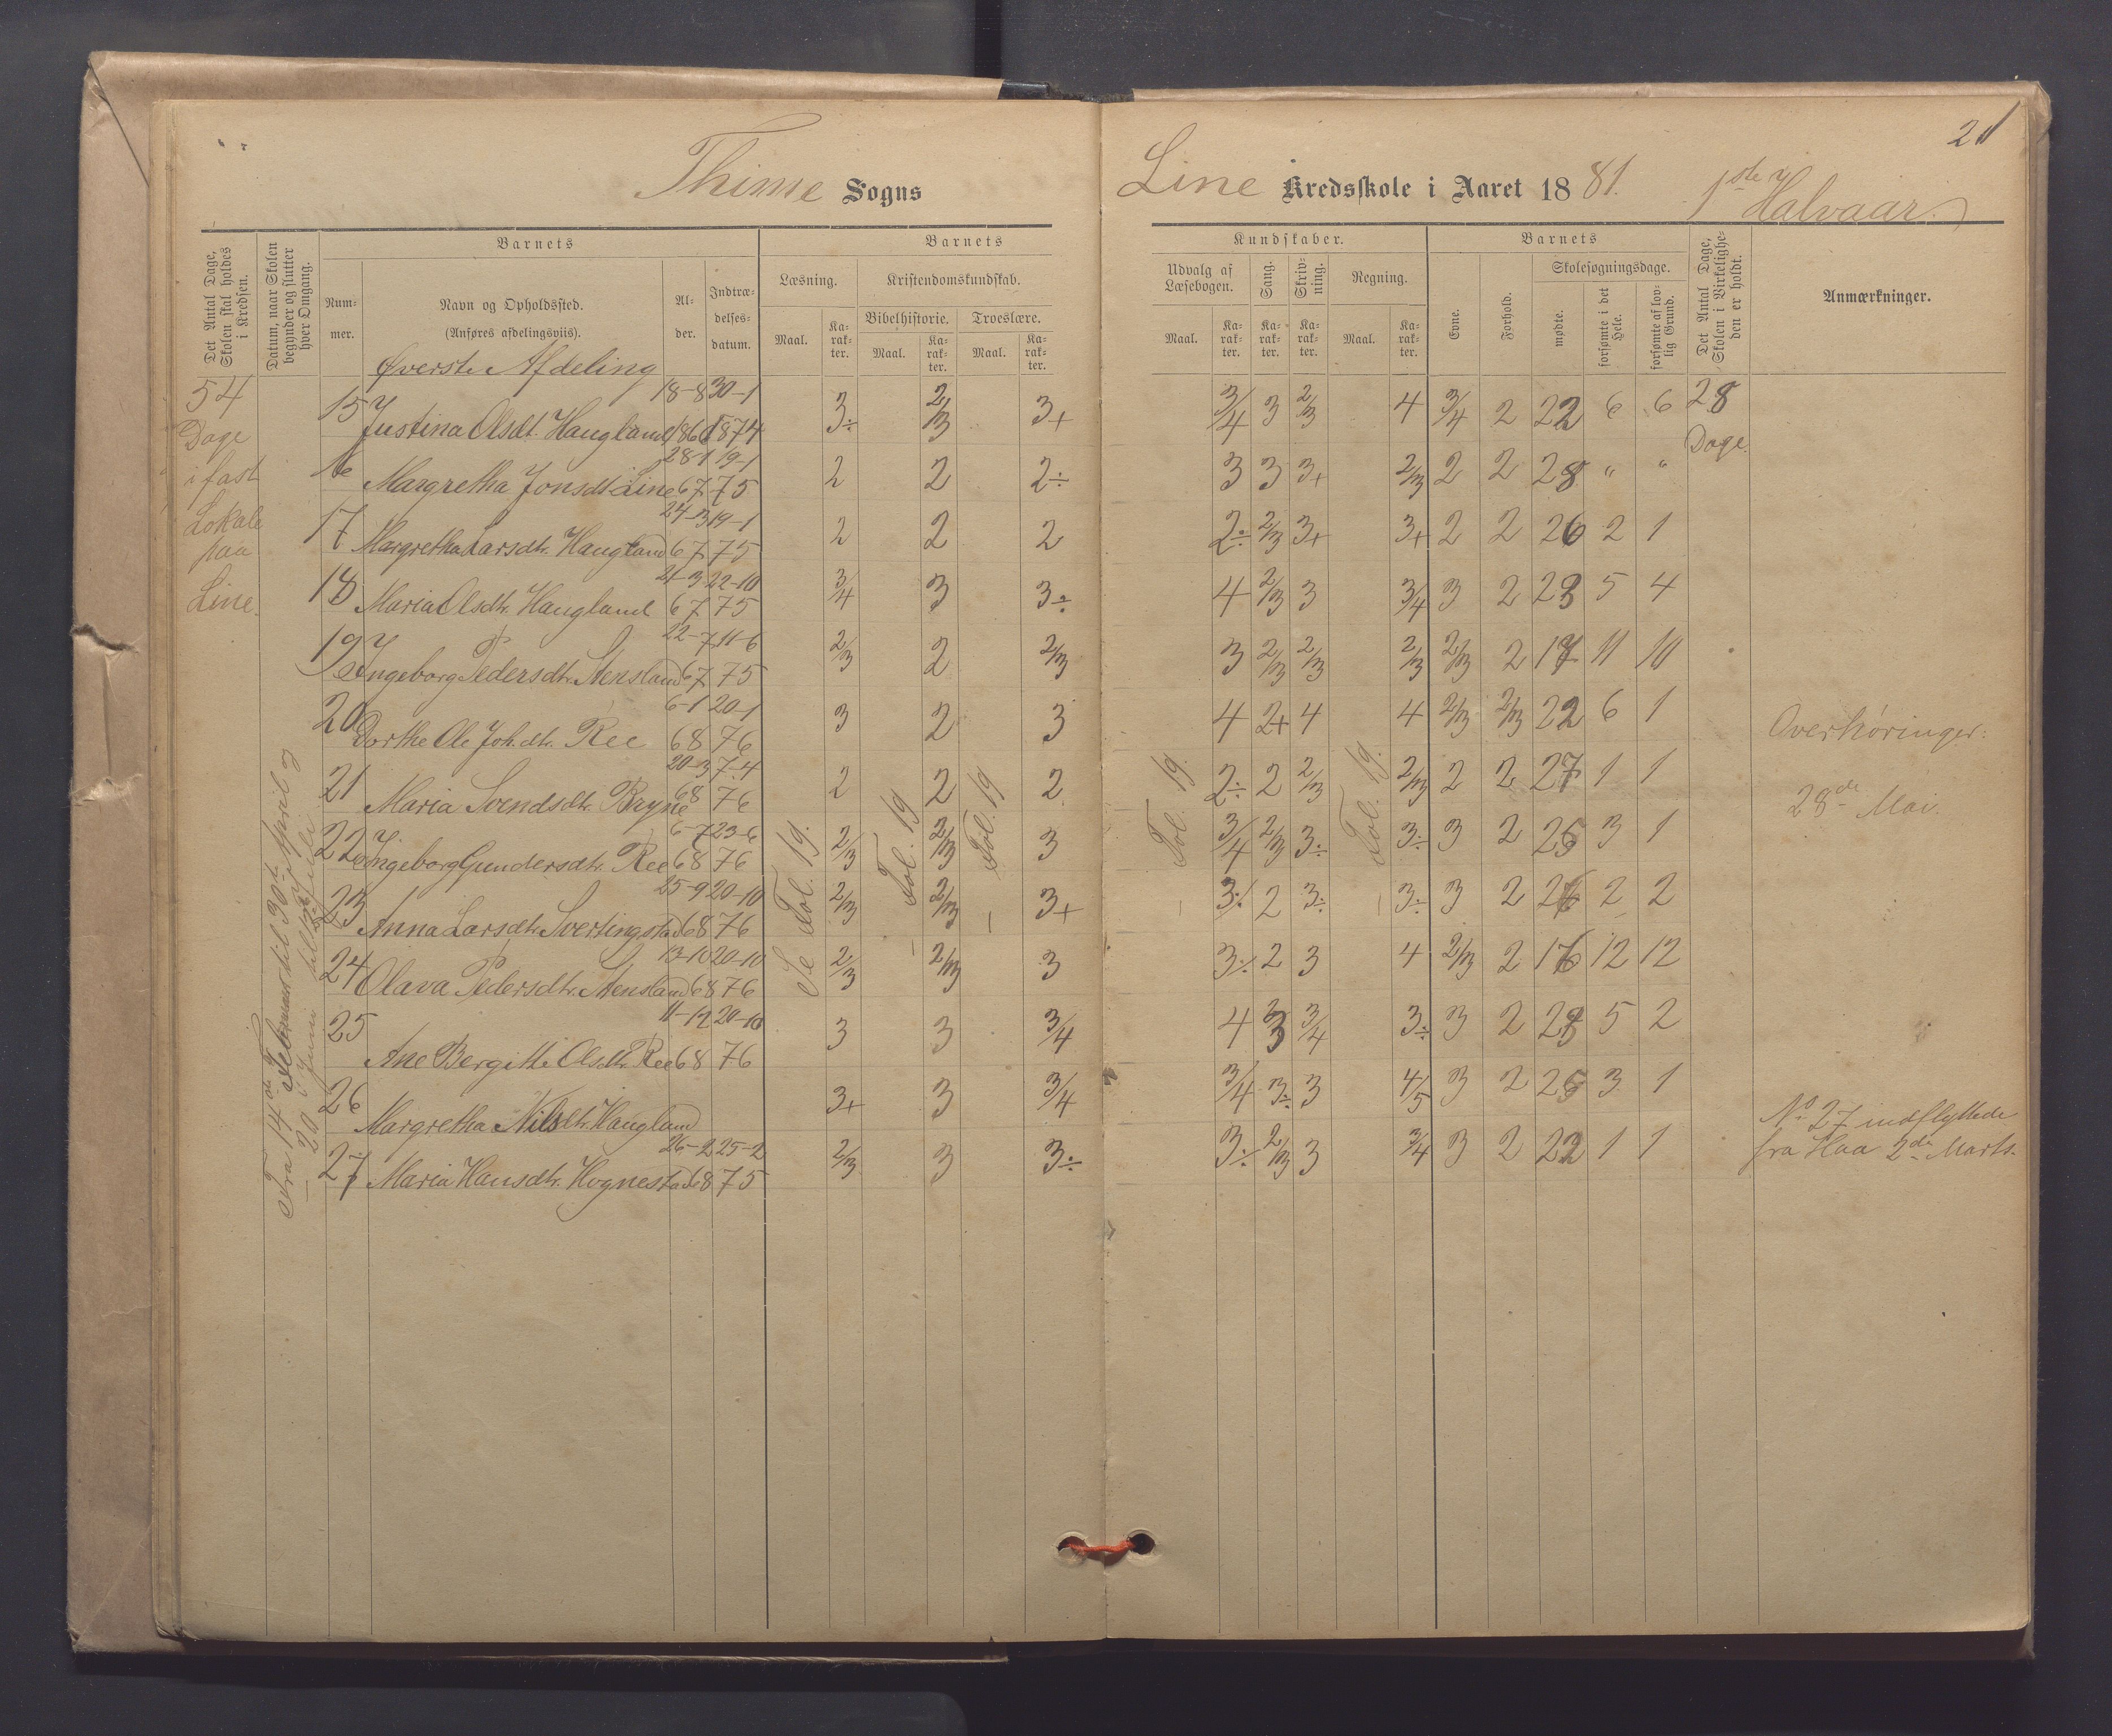 21
Thime Sogns
Line Kredsskole i Aaret 1881. 1ste Halvaar.
Det Antal Dage, Skolen skal holdes i Kredsen.
Datum, naar Skolen begynder og slutter hver Omgang.
Barnets
Barnets
Kundskaber.
Barnets
Det Antal Dage, Skolen i Virkeligheden er holdt.
Anmærkninger.
Nummer.
Navn og Opholdssted.
(Anføres afdelingsviis).
Alder.
Indtrædelsesdatum.
Læsning.
Kristendomskundskab.
Udvalg af Læsebogen.
Sang.
Skrivning.
Regning.
Evne.
Forhold.
Skolesøgningsdage.
Bibelhistorie.
Troeslære.
mødte.
forsømte i det Hele.
forsømte af lovlig Grund.
Maal.
Karakter.
Maal.
Karakter.
Maal.
Karakter.
Maal.
Karakter.
Karakter.
Karakter.
Maal.
Karakter.
Øverste Afdeling
54 Dage i fast Lokale paa Line.
Fra 14de Februar til 30te April og
– 20 Juni til Juli
15 Justina Olsdt. Haugland 18-8 1866 30-1 1874 3÷ 2/3 3+ 3/4 3 2/3 4 3/4 2 22 6 6 28 Dage.
16 Margretha Jonsdt. Line 28-1 67 19-1 75 2 2 2÷ 3 3 3+ 2/3 2 2 28 " "
17 Margretha Larsdtr. Haugland 24-3 67 19-1 75 2 2 2 2÷ 2/3 3+ 3+ 2 2 26 2 1
18 Maria Olsdtr. Haugland 21-3 67 22-10 75 3/4 3 3÷ 4 2/3 3 3/4 3 2 23 5 4
19 Ingeborg Pedersdtr. Stensland 22-7 67 11-6 75 2/3 2 2/3 3 2/3 2/3 2/3 2/3 2 17 11 10
20 Dorthe Ole Joh.dtr. Ree 6-1 68 20-1 76 3 2 3 4 2+ 4 4 2/3 2/3 22 6 1
Overhøringer:
21 Maria Svendsdtr. Bryne 20-3 68 7-4 76 2 2 2 2÷ 2 2/3 2/3 2 2 27 1 1
28de Mai.
22 Ingeborg Gundersdtr. Ree 6-7 68 23-6 76 2/3 2/3 3 3/4 2/3 3÷ 3÷ 3 2 25 3 1
23 Anna Larsdtr. Svertingstad 25-9 68 20-10 76 2/3 2/3 3+ 3÷ 2 3÷ 3÷ 3 2 26 2 2
24 Olava Pedersdtr. Stensland 13-10 68 20-10 76 2/3 2/3 3 3÷ 2 3 4 2/3 2 16 12 12
25 Ane Bergitte Olsdtr. Ree 11-12 68 20-10 76 3 3 3/4 4 3 3/4 3÷ 3 2 23 5 2
26 Margretha Nilsdtr. Haugland 3+ 3 3/4 3/4 3÷ 3 4/5 3 2 25 3 1
27 Maria Hansdtr. Hognestad 26-2 68 25-2 75 2/3 3 3÷ 3÷ 2/3 3 3/4 3 2 22 1 1
No 27 indflyttede
fra Haa 2den Marts.
Se Fol. 19.
Fol. 19
Fol. 19
Fol. 19.
Fol. 19.